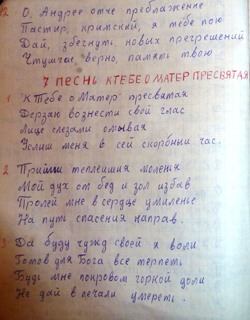 12. О, Андрее отче преблаженне
Пастир, кримский, я тебе пою
Дай, избегнуть, новых прегрешений
Чтущим верно, память твою.
7 ПЕСНЬ К ТЕБЕ О МАТЕР ПРЕСВЯТАЯ
1 К Тебе о Матер пресвятая
Дерзаю вознести свой глас
Лице слезами омывая
Услиш меня в сей скорбний час.
2. Приими теплейшия моленья
Мой дух от бед и зол избав
Пролей мне в сердце умиленье
На путь спасения направ.
3 Да буду чужд своей я воли
Готов для Бога все терпеть
Будь мне покровом горкой доли
Не дай в печали умереть.